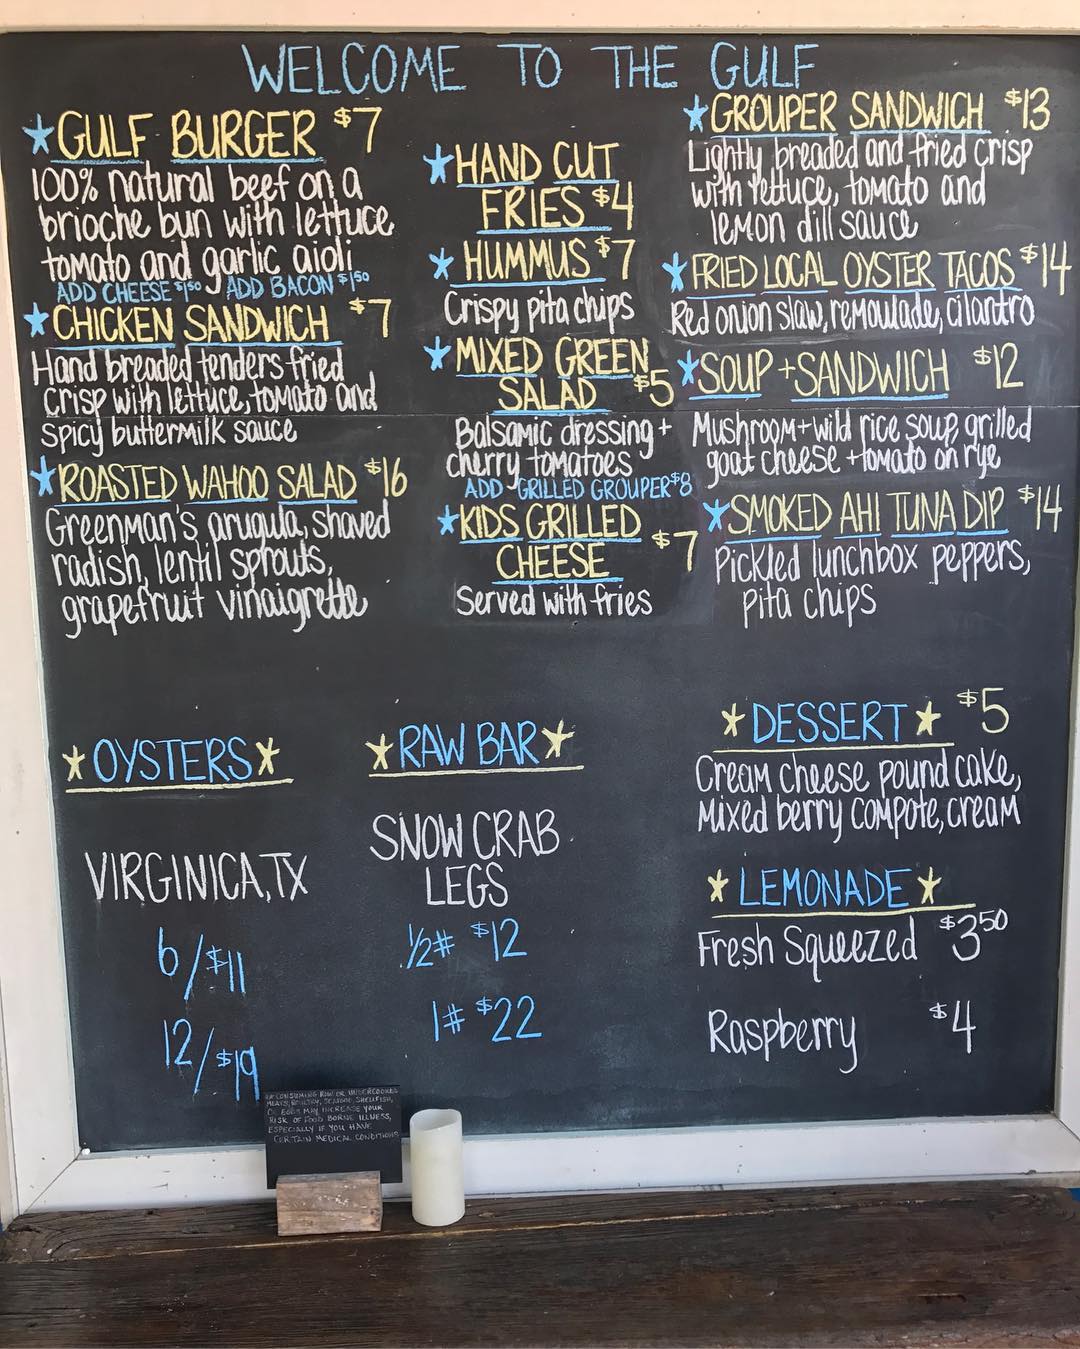 WELCOME TO THE GULF
GULF BURGER $7
100% natural beef on a
brioche bun with lettuce
tomato and garlic aioli
ADD CHEESE $1.50 ADD BACON $1.50
CHICKEN SANDWICH $7
Hand breaded tenders fried
crisp with lettuce, tomato and
spicy buttermilk sauce
ROASTED WAHOO SALAD $16
Greenman's arugula, shaved
radish, lentil sprouts,
grapefruit vinaigrette
HAND CUT
FRIES $4
HUMMUS $7
Crispy pita chips
MIXED GREEN
SALAD $5
Balsamic dressing +
cherry tomatoes
ADD GRILLED GROUPER $8
KIDS GRILLED
CHEESE $7
Served with fries
GROUPER SANDWICH $13
Lightly breaded and fried crisp
with lettuce, tomato and
lemon dill sauce
FRIED LOCAL OYSTER TACOS $14
Red onion slaw, remoulade, cilantro
SOUP + SANDWICH $12
Mushroom + wild rice soup, grilled
goat cheese + tomato on rye
SMOKED AHI TUNA DIP $14
Pickled lunchbox peppers,
pita chips
OYSTERS
VIRGINICA, TX
6/$11
12/$19
RAW BAR
SNOW CRAB
LEGS
1/2# $12
1# $22
DESSERT $5
Cream cheese pound cake,
Mixed berry compote, cream
LEMONADE
Fresh Squeezed $3.50
Raspberry $4
CONSUMING RAW OR UNDERCOOKED
MEATS, POULTRY, SEAFOOD, SHELLFISH,
OR EGGS MAY INCREASE YOUR
RISK OF FOOD BORNE ILLNESS,
ESPECIALLY IF YOU HAVE
CERTAIN MEDICAL CONDITIONS